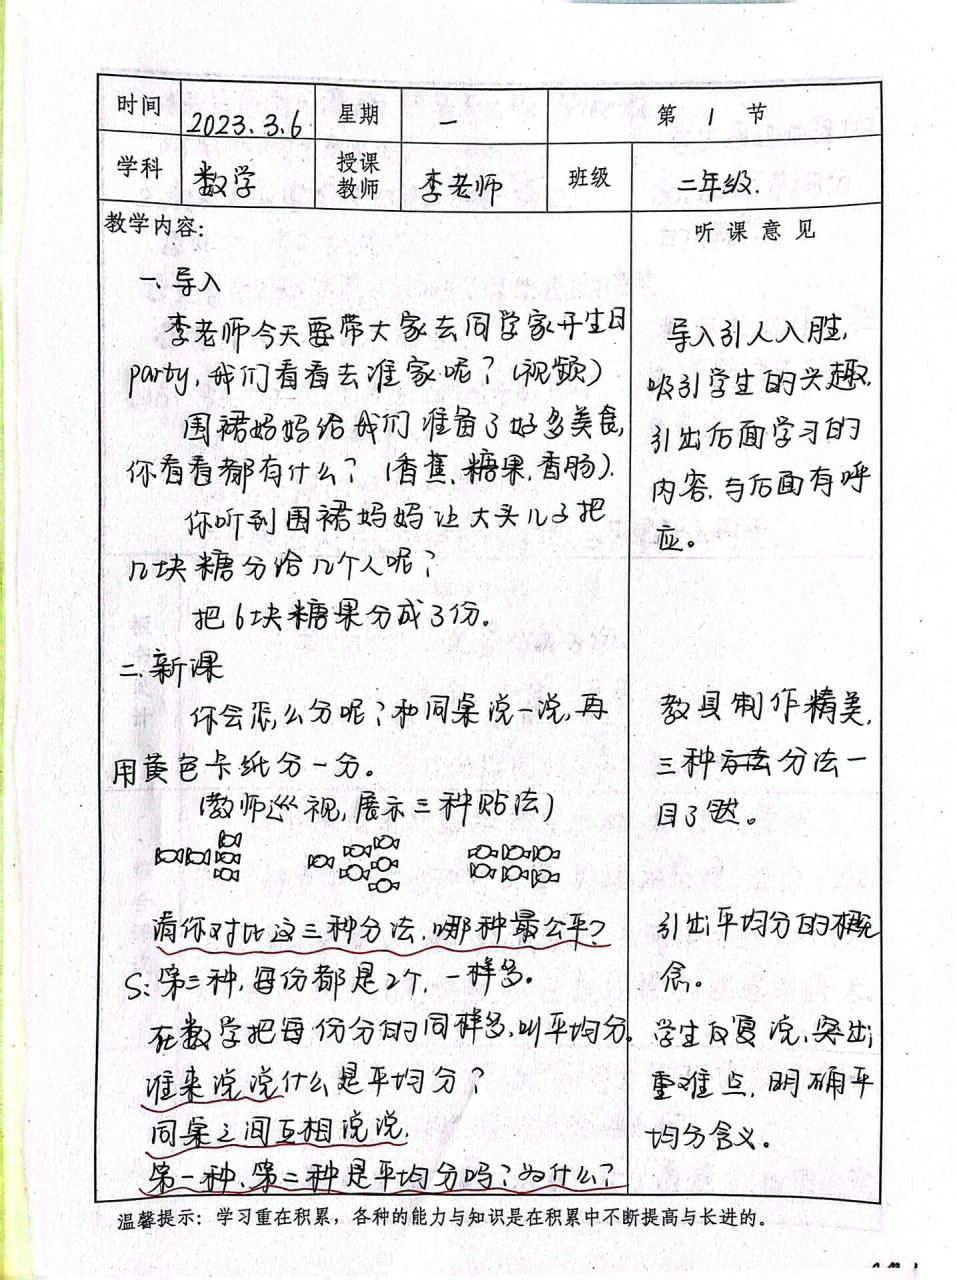 时间 2023.3.6 星期 一 第 1 节
学科 数学 授课教师 李老师 班级 二年级.
教学内容:
一、导入
李老师今天要带大家去同学家开生日
party,我们看看去谁家呢?(视频)
围裙妈妈给我们准备了好多美食,
你看看都有什么?(香蕉、糖果,香肠).
你听到围裙妈妈让大头儿子把
几块糖分给几个人呢?
把6块糖果分成3份。
二、新课
你会怎么分呢?和同桌说一说,再
用黄色卡纸分一分。
(教师巡视,展示三种贴法)
请你对比这三种分法,哪种最公平?
S:第三种,每份都是2个,一样多。
在数学把每份分的同样多,叫平均分。
谁来说说什么是平均分?
同桌之间互相说说.
第一种、第二种是平均分吗?为什么?
听课意见
导入引人入胜,
吸引学生的兴趣,
引出后面学习的
内容,与后面有呼
应。
教具制作精美,
三种方法分法一
目了然。
引出平均分的概
念。
学生反复说,突出
重难点,明确平
均分含义。
温馨提示:学习重在积累,各种的能力与知识是在积累中不断提高与长进的。